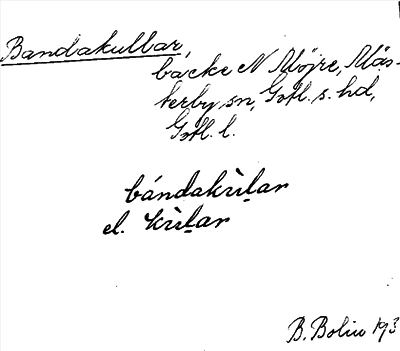 Bandakullar,
backe N Möjre, Mäs-
terby sn, Gotl. s. hd,
Gotl. l.
bándakrìl̠ar
el. krìl̠ar
B. Bolin 193